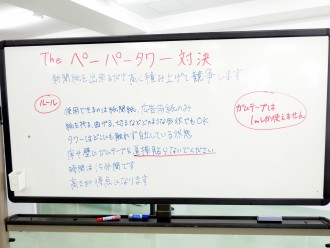 The ペーパータワー対決
新聞紙を出来るだけ高く積み上げて競争します
ルール
使用できるのは新聞紙、広告用紙のみ
紙を折る、曲げる、切るなどどのような形状でもOK
タワーはどこにも触れず自立している状態
床や壁にガムテープを直接貼らないでください
時間は15分間です
高さが得点になります
ガムテープは
1mしか使えません